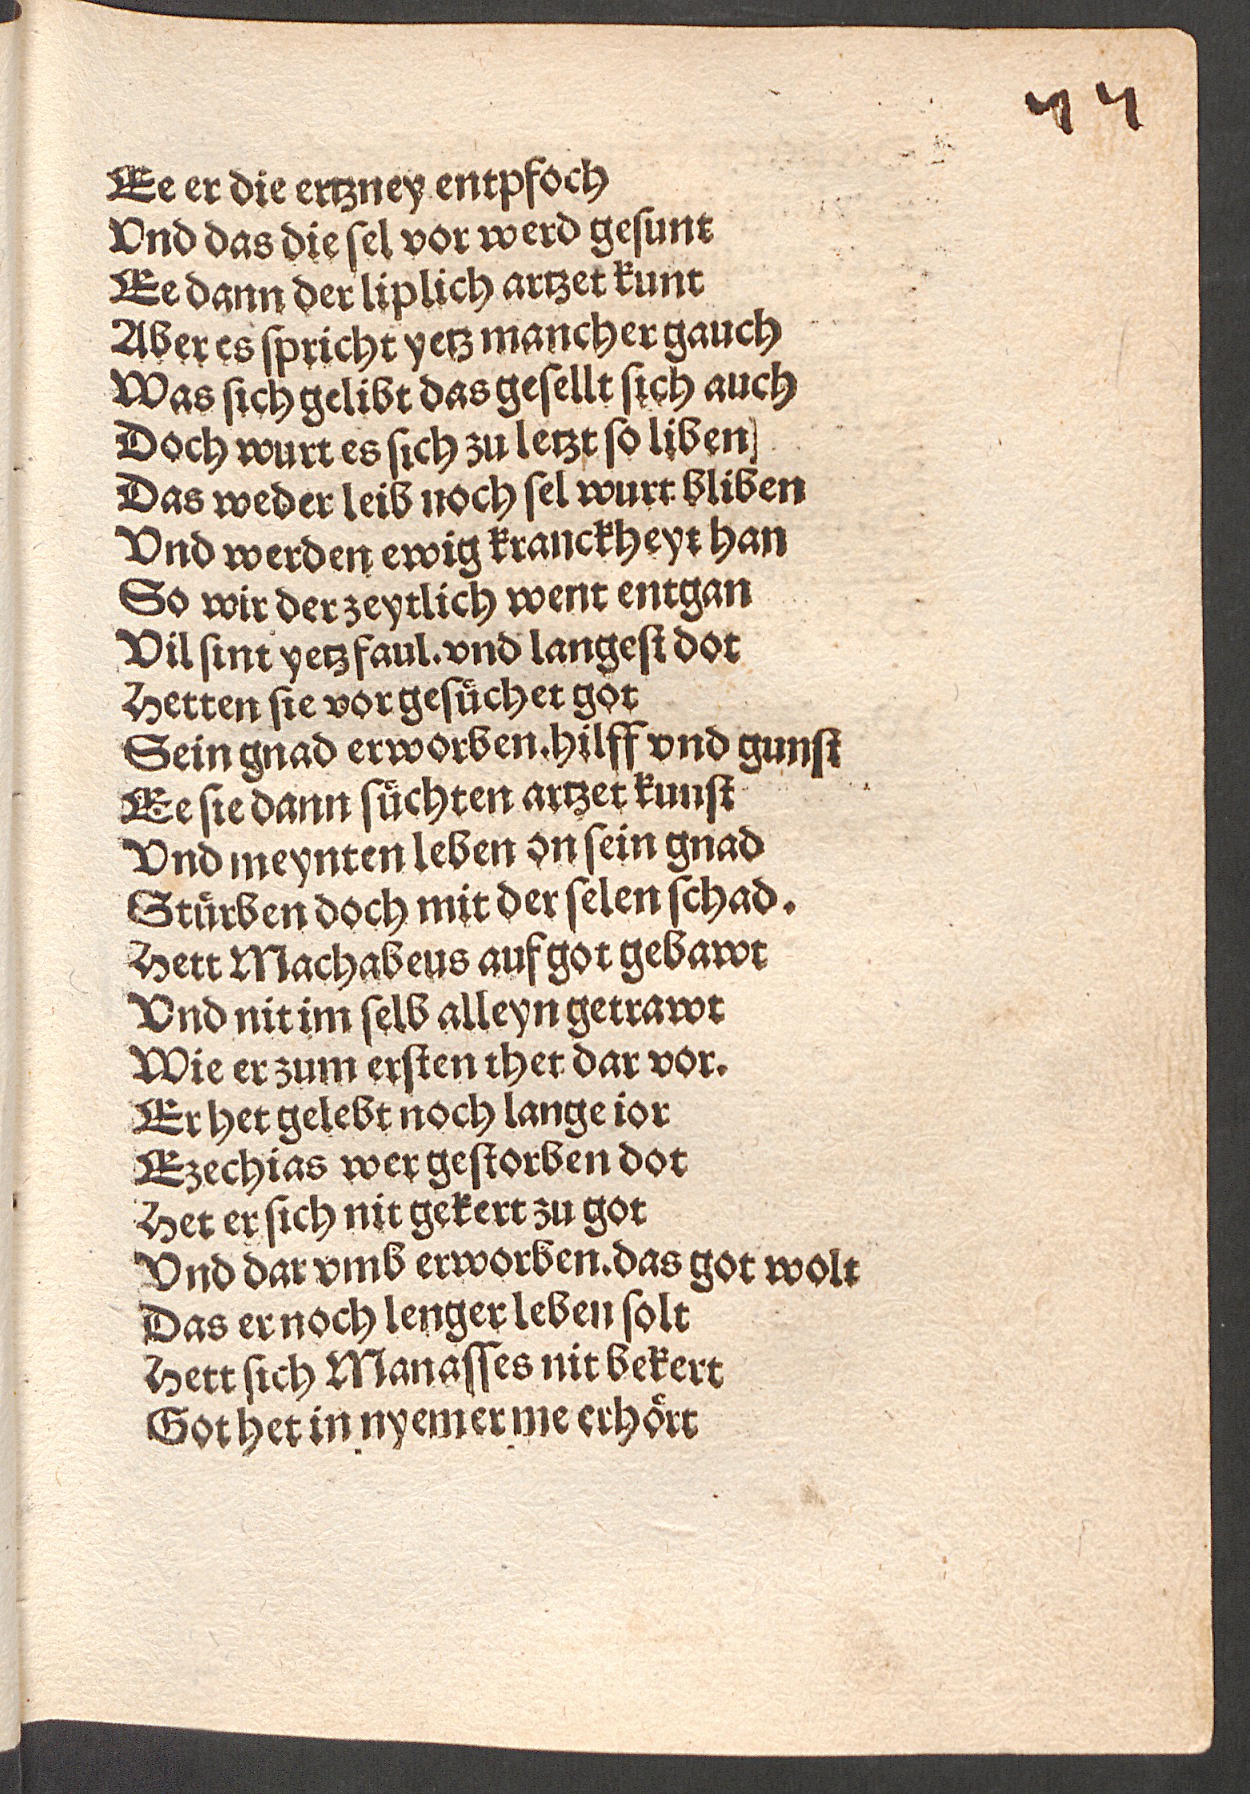 77
Ee er die ertzney entpfoch
Vnd das die sel vor werd gesunt
Ee dann der liplich artzet kunt
Aber es spricht yetz mancher gauch
Was sich gelibt das gesellt sich auch
Doch wurt es sich zu letzt so liben
Das weder leib noch sel wurt bliben
Vnd werden ewig kranckheyt han
So wir der zeytlich went entgan
Vil sint yetz faul. vnd langest dot
Hetten sie vor gesuͤchet got
Sein gnad erworben. hilff vnd gunst
Ee sie dann suͤchten artzet kunst
Vnd meynten leben on sein gnad
Stuͤrben doch mit der selen schad.
Hett Machabeus auf got gebawt
Vnd nit im selb alleyn getrawt
Wie er zum ersten thet dar vor.
Er het gelebt noch lange ior
Ezechias wer gestorben dot
Het er sich nit gekert zu got
Vnd dar vmb erworben. das got wolt
Das er noch lenger leben solt
Hett sich Manasses nit bekert
Got het in nyemer me erhoͤrt